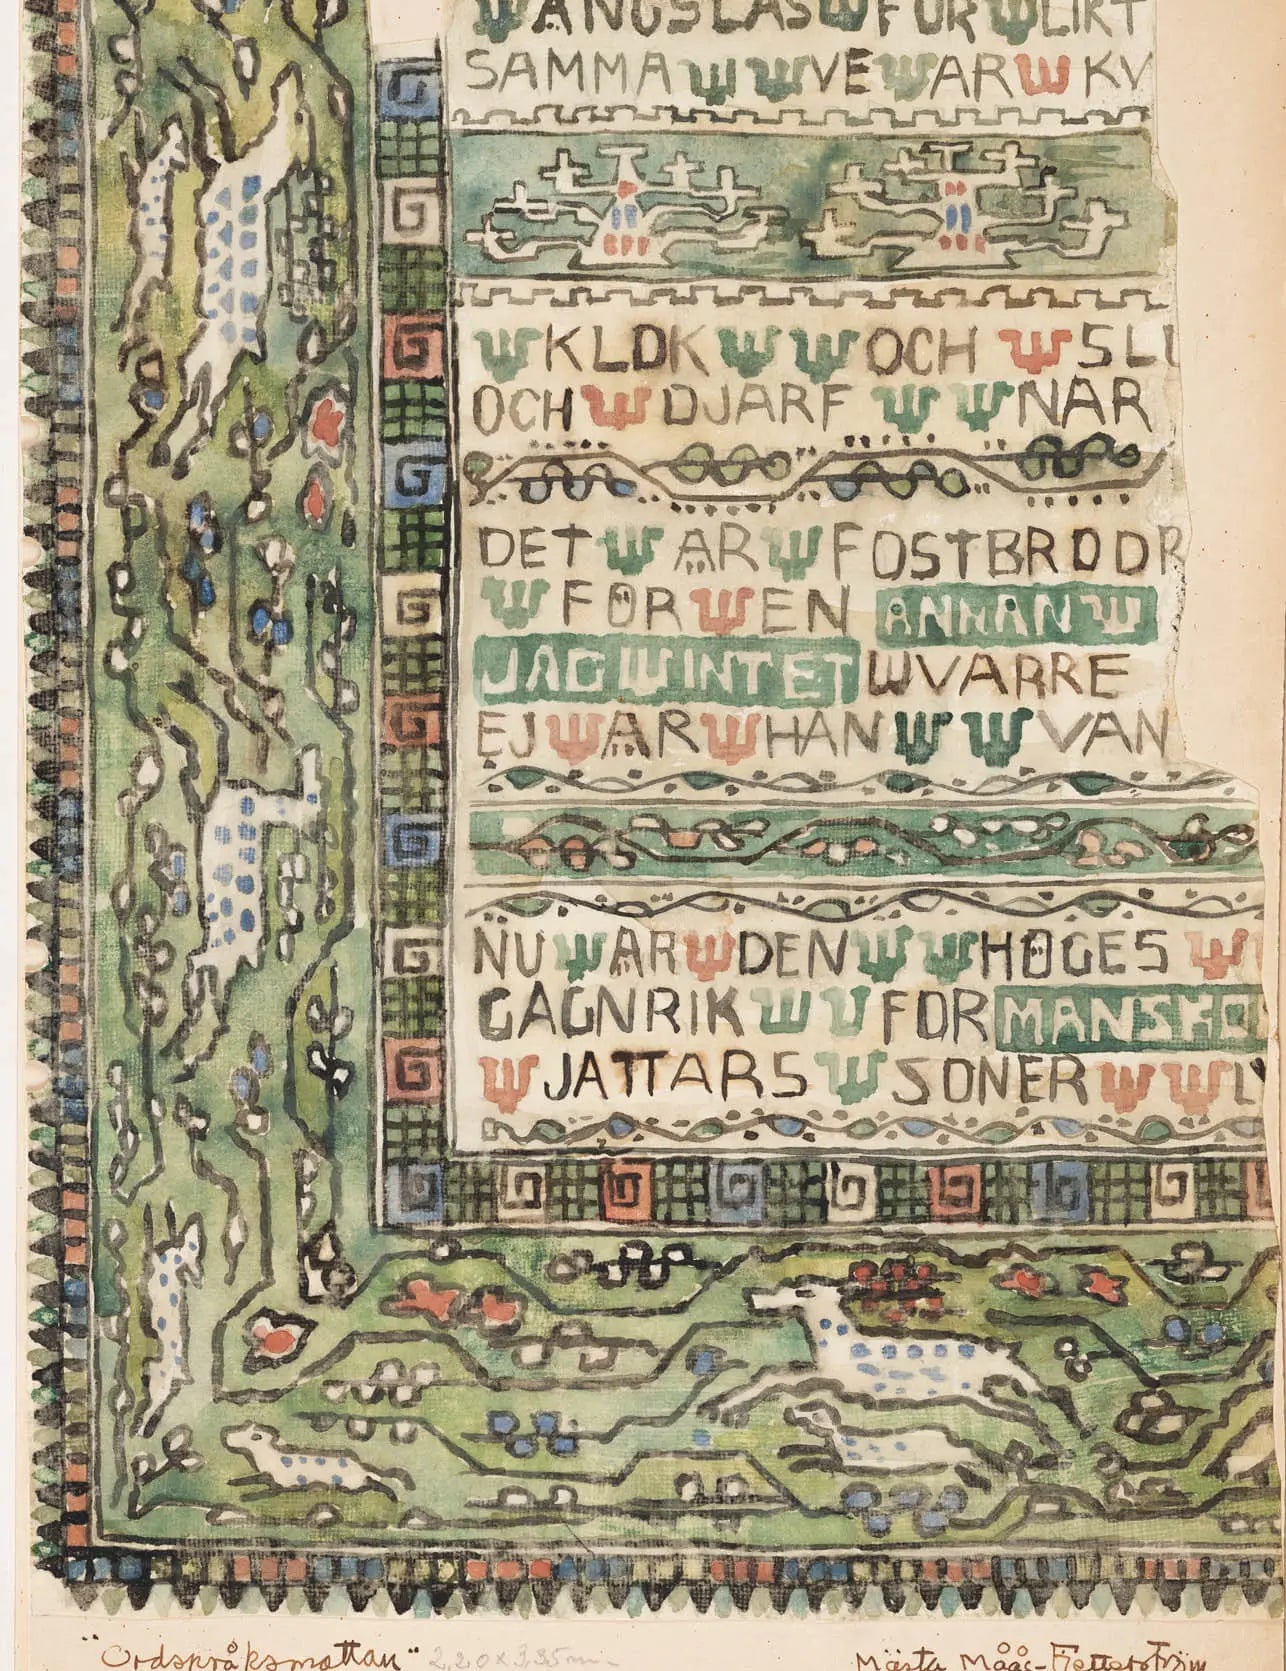 ÄNGSLAS FÖR LIKT
SAMMA VE AR KV
KLOK OCH SLU
OCH DJARF NAR
DET ÄR FOSTBRODR
FÖR EN ANNAN
JAG INTET VARRE
EJ ÄR HAN VAN
NU ÄR DEN HÖGES
GAGNRIK FOR MANSKO
JATTARS SONER LY
"Ordspråksmattan" 2,20 x 3,35 m.
Märta Måås-Fjetterström